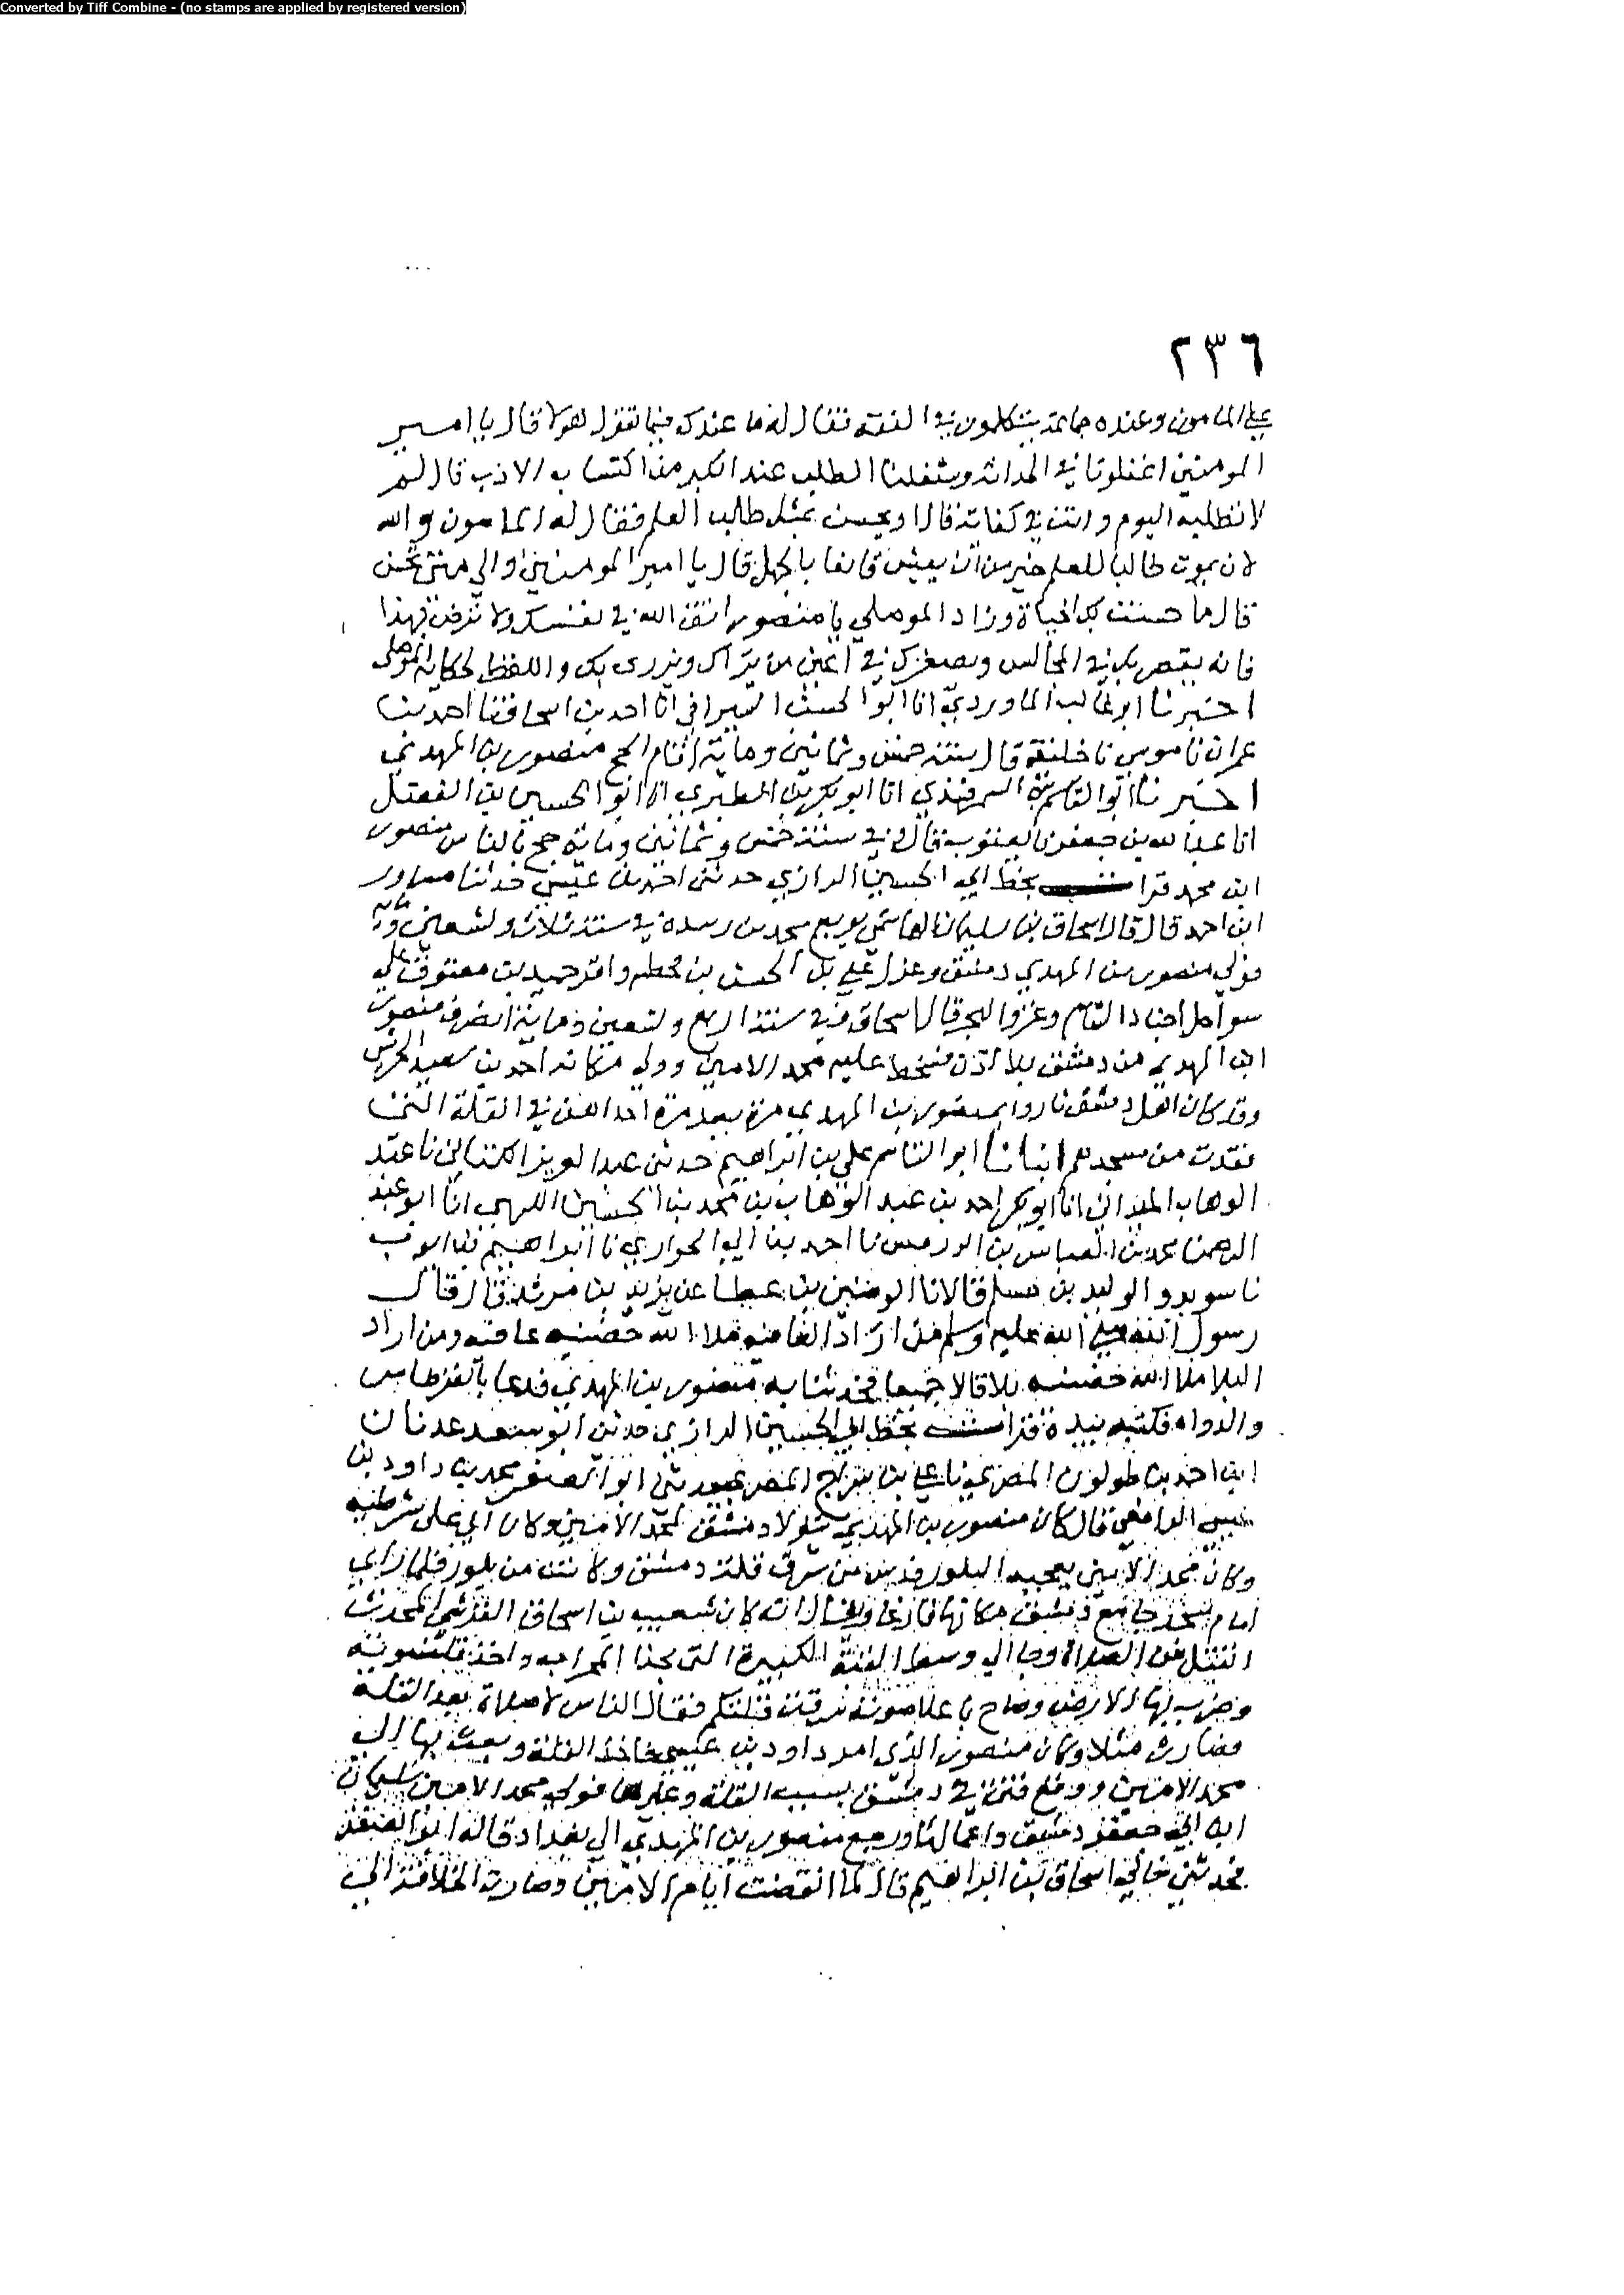 Converted by Tiff Combine - (no stamps are applied by registered version)
٢٣٦
على المامون وعنده جماعة يتكلمون في الفقه فقال له ما عندك فيما يقول هولا قال يا امير
المومنين اغفلونا في الحداثة وشغلنا الطلب عند الكبر من اكتساب الادب قال لم
لا تطلبه اليوم وانت في كفاية قال او يحسن بمثلي طلب العلم فقال له المامون والله
لان يموت طالبا للعلم خير من ان يعيش قانعا بالجهل قال يا امير المومنين والى متى يحسن
قال ما حسنت بك الحياة وزاد الموصلي يا منصور اتق الله في نفسك ولا ترض بهذا
فانه يقصر بك في المجالس ويصغرك في اعين من يراك ويزرى بك واللفظ لحكاية الموصلي
اخبرنا ابو غالب الماوردي انا ابو الحسن السيرافي انا احمد بن اسحاق نا احمد بن
عمران نا موسى نا خليفة قال سنة خمس وثمانين ومائة اقام الحج منصور بن المهدي
اخبرنا ابو القاسم بن السمرقندي انا ابو بكر بن الطبري انا ابو الحسين بن الفضل
انا عبد الله بن جعفر نا يعقوب قال وفي سنة خمس وثمانين ومائة حج بالناس منصور
ابن محمد قرات بخط ابي الحسين الرازي حدثني احمد بن عيسى حدثنا مساور
ابن احمد قال قال اسحاق بن سليمان الهاشمي بويع محمد بن رسدة في سنة ثلاث وتسعين ومائة
فولي منصور بن المهدي دمشق وعزل علي بن الحسن بن قحطبه واقر حميد بن معيوف على
سواحل اجناد الشام وغزو البحر قال اسحاق وفي سنة اربع وتسعين ومائة انصرف منصور
ابن المهدي من دمشق بلا اذن فسخط عليه محمد الامين وولي مكانه احمد بن سعيد الحرشي
وقد كان اهل دمشق ثاروا بمنصور بن المهدي مرة بعد مرة احداهن في القلة التي
فقدت من مسجدهم انبانا ابو القاسم علي بن ابراهيم حدثني عبد العزيز الكتاني نا عبد
الوهاب الميداني انا ابو بكر احمد بن عبد الوهاب بن محمد بن الحسين اللهبي انا ابو عبد
الرحمن محمد بن العباس بن الدرفس نا احمد بن ابي الحواري نا ابراهيم بن ايوب
نا سويد والوليد بن مسلم قالا نا الوضين بن عطا عن يزيد بن مرثد قال قال
رسول الله صلى الله عليه وسلم من اراد العافيه ملا الله حضنيه عافيه ومن اراد
البلا ملا الله حضنيه بلا قالا جميعا فحدثنا به منصور بن المهدي فدعا بالقرطاس
والدواه فكتبه بيده قرات بخط ابي الحسين الرازي حدثني ابو سعد عدنان
ابن احمد بن طولون المصري نا علي بن سراج المصري حدثني ابو الصقر محمد بن داود بن
عيسى الرافقي قال كان منصور بن المهدي يتولا دمشق لمحمد الامين وكان ابي على شرطته
وكان محمد الامين يعجبه البلور فدس من سرق قلة دمشق وكانت من بلور فلما راى
امام مسجد جامع دمشق مكانها فارغا ويقال انه كان شعيب بن اسحاق القرشي المحدث
انفتل من الصلاة وجا الى وسط القبة الكبيرة التي بحذا المحراب واخذ قلنسوته
وضرب بها الارض وصاح باعلا صوته سرقت قلتكم فقال الناس لا صلاة بعد القلة
فصارت مثلا وكان منصور الذى امر داود بن عيسى باخذ القلة وبعث بها الى
محمد الامين ووقع فتنة في دمشق بسبب القلة وغيرها فولى محمد الامين سليمان
ابن ابي جعفر دمشق واعمالها ورجع منصور بن المهدي الى بغداد قال ابو الصقر
فحدثني خالي اسحاق بن ابراهيم قال لما انقضت ايام الامين وصارت الخلافة الى